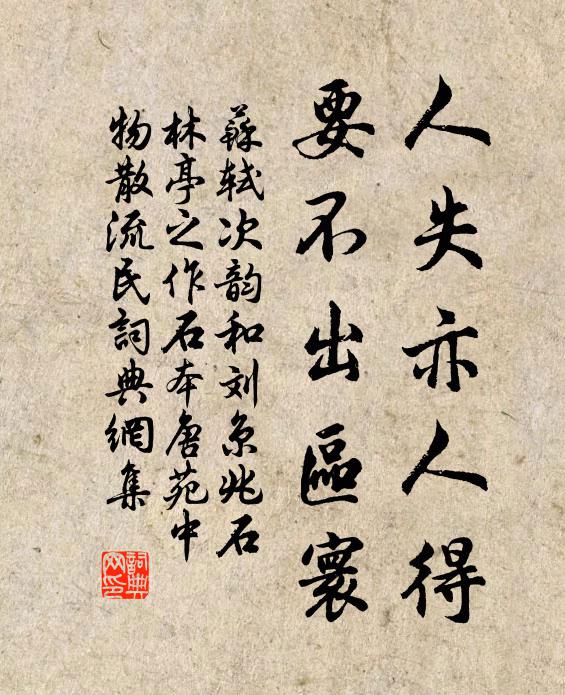 人失亦人得
要不出區寰
蘇轼次韵和刘京兆石
林亭之作石本唐苑中
物散流民詞典網集
詞典网印